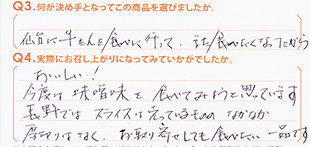 Q3.何が決め手となってこの商品を選びましたか。
仙台に牛たんを食べに行って、また食べたくなったから
Q4.実際にお召し上がりになってみていかがでしたか。
おいしい!
今度は味噌味を食べてみようと思っています
長野ではスライスは売っているものの なかなか
厚切りはなく、お取り寄せしても食べたい一品です